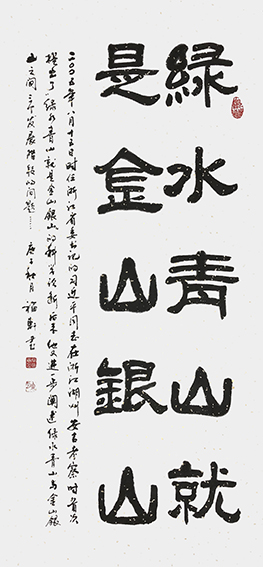 綠水青山就
是金山銀山
二〇〇五年八月十五日时任浙江省委书记的习近平同志在浙江湖州安吉考察时首次
提出了绿水青山就是金山银山的科学论断后来他又进一步阐述绿水青山与金山银
山之间三个发展阶段的问题……庚子秋月